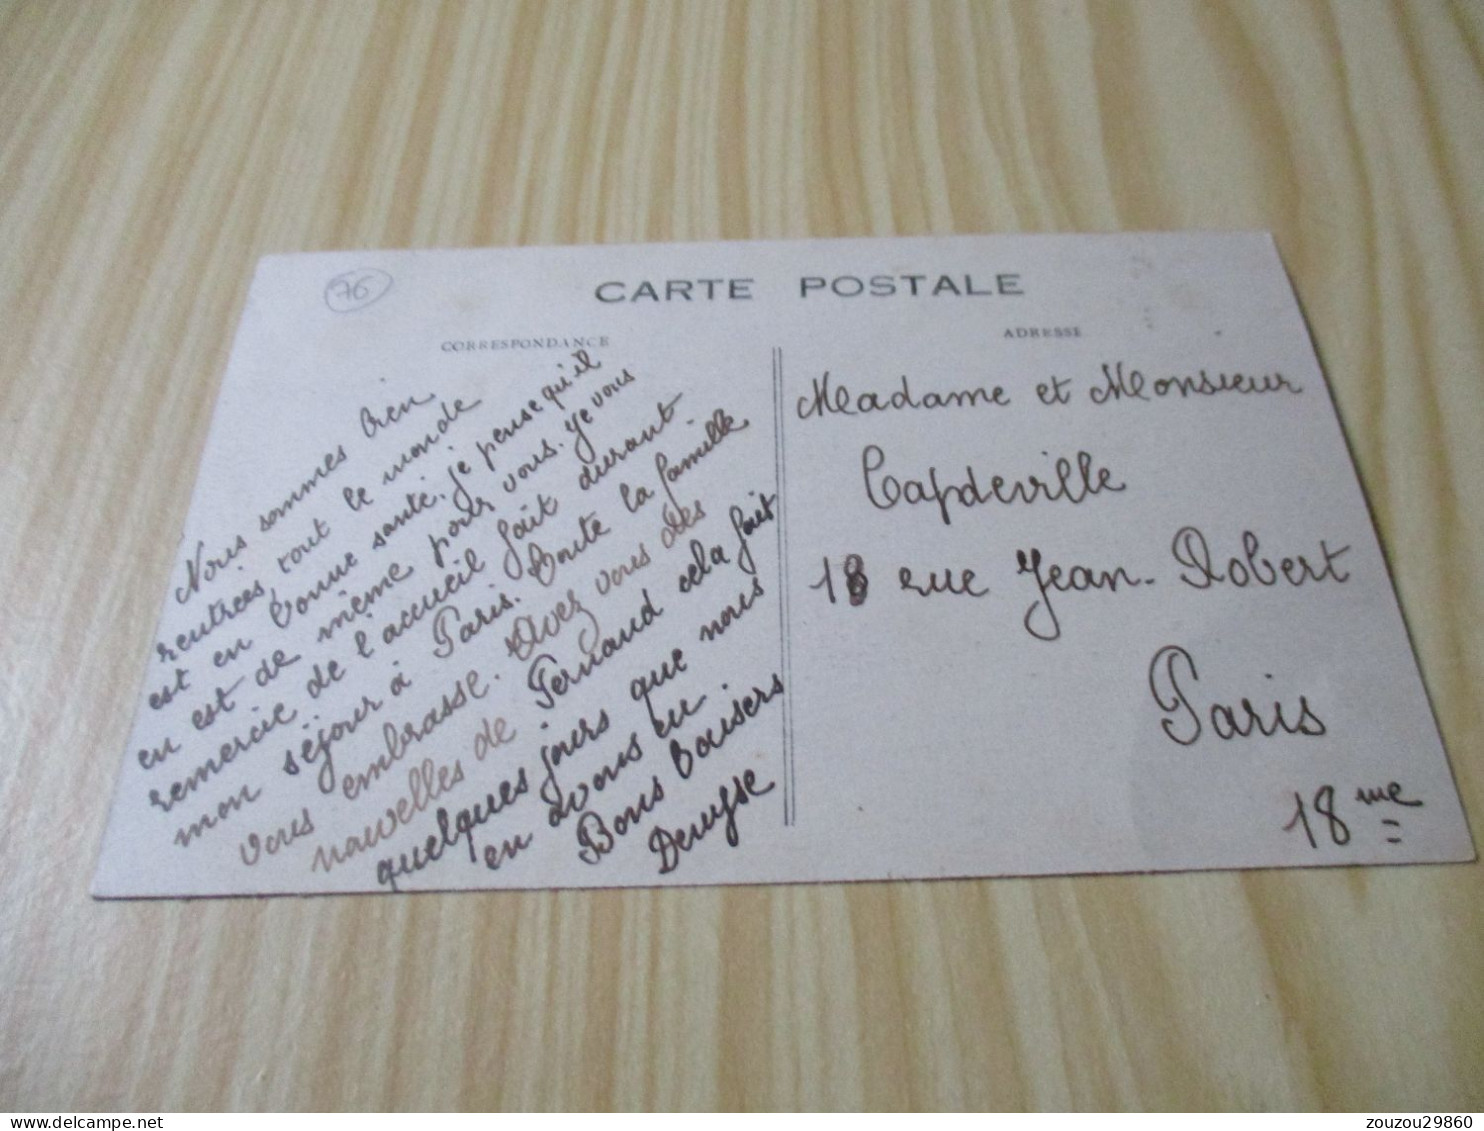 76
CARTE POSTALE
CORRESPONDANCE
Nous sommes bien
rentrées, tout le monde
est en bonne santé, je pense qu'il
en est de même pour vous. Je vous
remercie de l'accueil fait durant
mon séjour à Paris. Toute la famille
vous embrasse. Avez vous des
nouvelles de Fernand cela fait
quelques jours que nous
en avons eu
Bons baisers
Denyse
ADRESSE
Madame et Monsieur
Capdeville
18 rue Jean-Robert
Paris
18me
zouzou29860